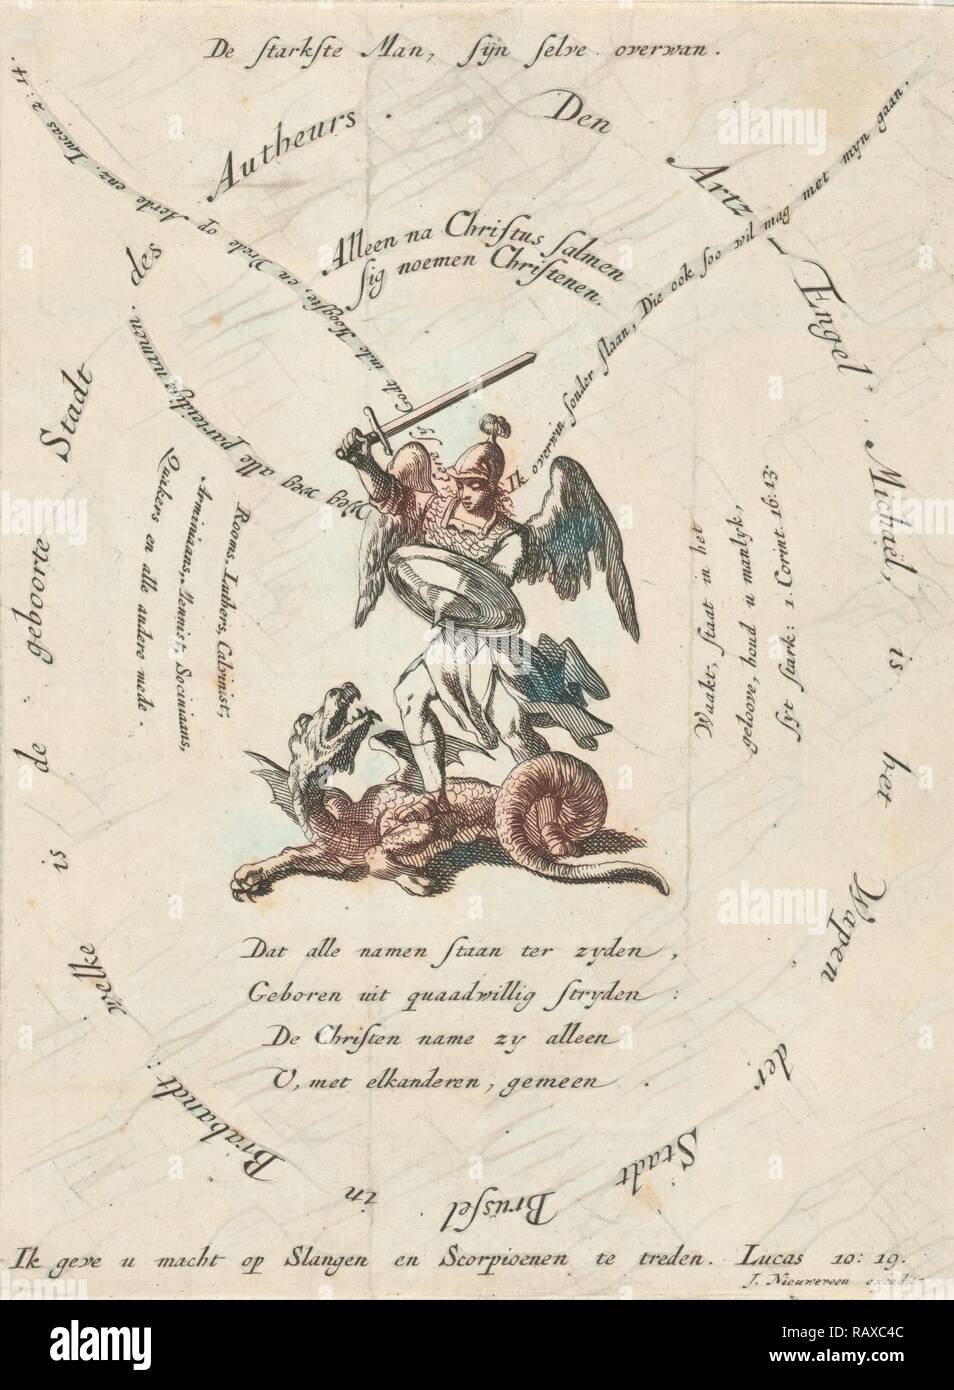 De ſtarkſte Man, ſijn ſelve overwan.
Den Artz-Engel Michael, is het Wapen der Stadt Brüſſel in Brabandt: welke is de geboorte Stadt des Autheurs.
Alleen na Chriſtus ſalmen
ſig noemen Chriſtenen.
Godt inde Hoogſte, en Vrede op Aerde enz. Lucas 2:14.
Weg weg alle parteidije namen.
Ik overwin ſonder ſlaan, Die ook ſoo wil mag met mijn gaan.
Rooms, Luthers, Calvinist,
Arminiaans, Mennist, Sociniaans,
Quakers en alle andere mede.
Waakt, ſtaat in het
geloove, houd u manlyk,
ſyt ſtark: 1. Corint. 16:13
Dat alle namen ſtaan ter zyden,
Geboren uit quaadwillig ſtryden:
De Chriſten name zy alleen
U, met elkanderen, gemeen.
Ik geve u macht op Slangen en Scorpioenen te treden. Lucas 10:19.
J. Nieuwereen excudit
alamy
Image ID: RAXC4C
www.alamy.com